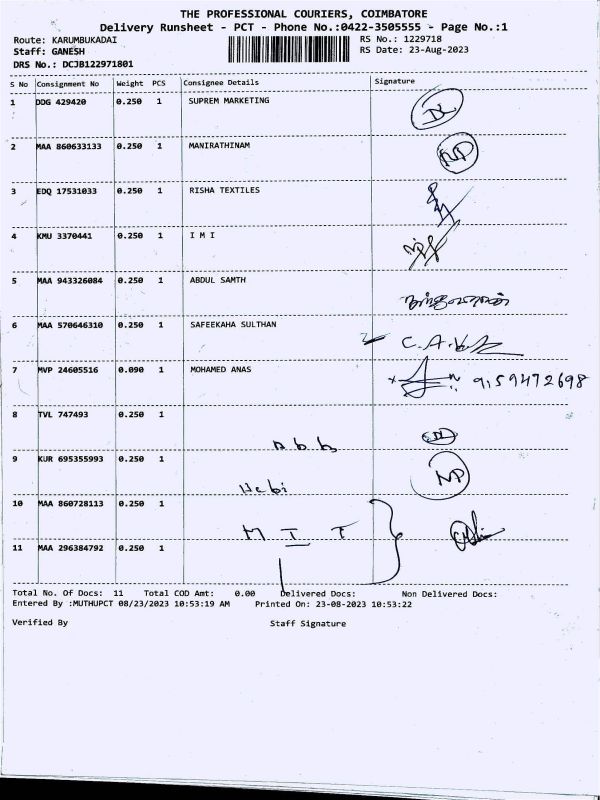 THE PROFESSIONAL COURIERS, COIMBATORE
Delivery Runsheet - PCT - Phone No.:0422-3505555 - Page No.:1
Route: KARUMBUKADAI RS No.: 1229718
Staff: GANESH RS Date: 23-Aug-2023
DRS No.: DCJB122971801
S No Consignment No Weight PCS Consignee Details Signature
1 DDG 429420 0.250 1 SUPREM MARKETING DL
2 MAA 860633133 0.250 1 MANIRATHINAM NP
3 EDQ 17531033 0.250 1 RISHA TEXTILES
4 KMU 3370441 0.250 1 I M I
5 MAA 943326084 0.250 1 ABDUL SAMTH
6 MAA 570646310 0.250 1 SAFEEKAHA SULTHAN
7 MVP 24605516 0.090 1 MOHAMED ANAS
8 TVL 747493 0.250 1 DL
9 KUR 695355993 0.250 1 NP
10 MAA 860728113 0.250 1 M I T
11 MAA 296384792 0.250 1
Total No. Of Docs: 11 Total COD Amt: 0.00 Delivered Docs: Non Delivered Docs:
Entered By :MUTHUPCT 08/23/2023 10:53:19 AM Printed On: 23-08-2023 10:53:22
Verified By Staff Signature